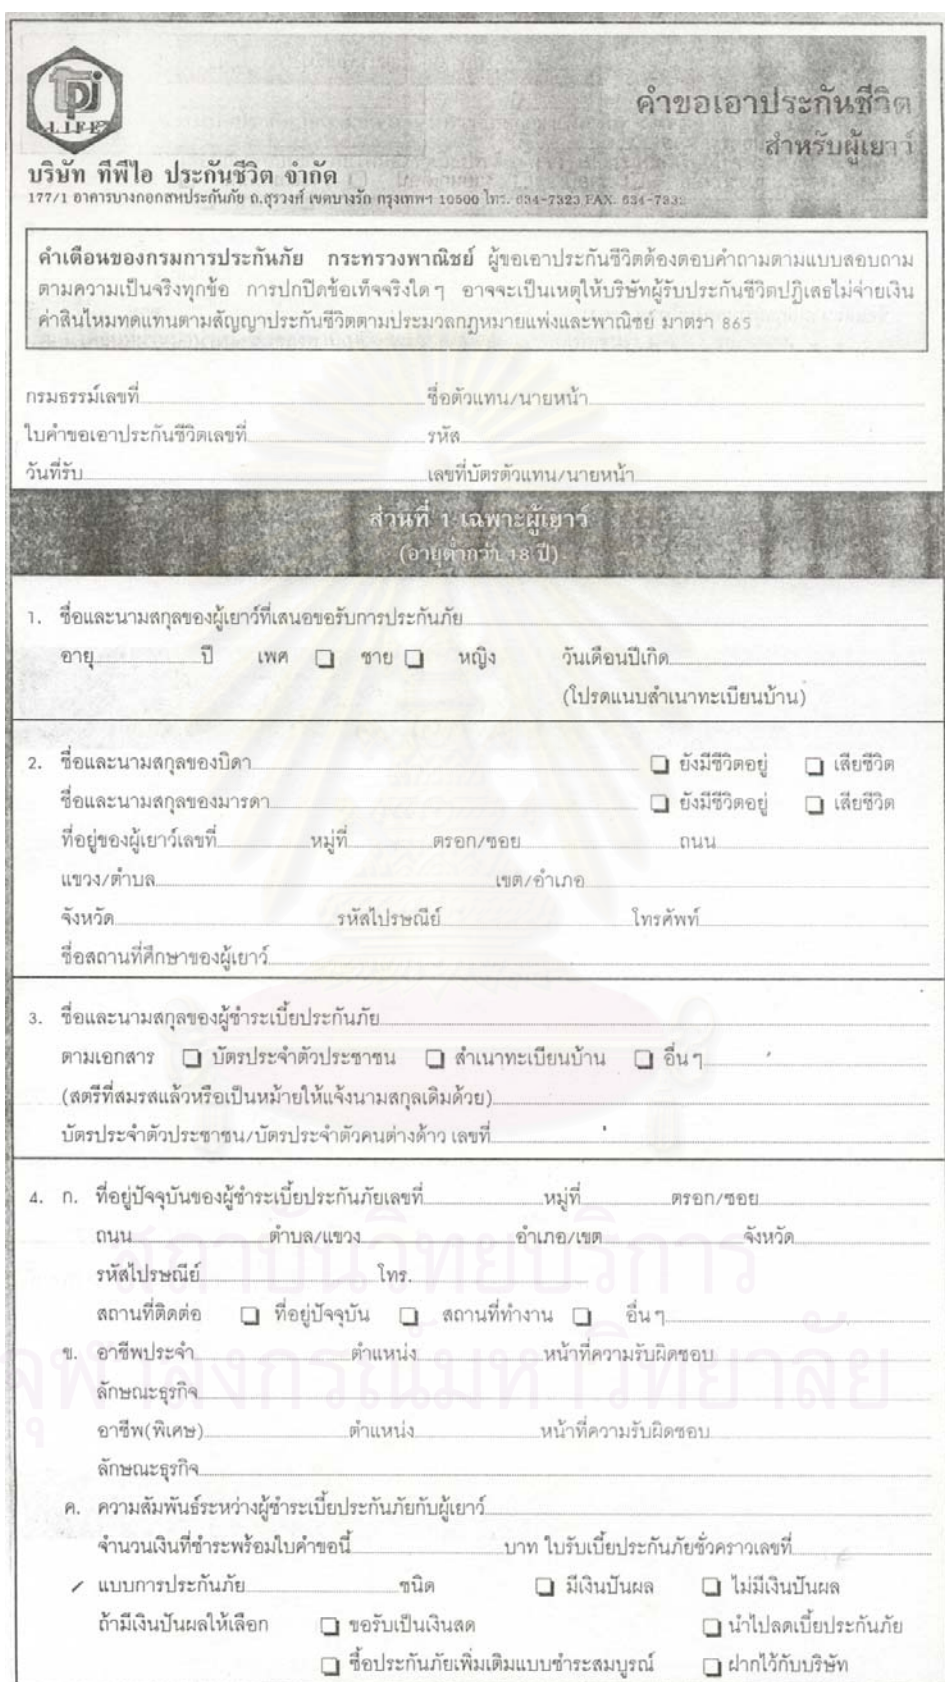 TPI
LIFE
คำขอเอาประกันชีวิต
สำหรับผู้เยาว์
บริษัท ทีพีไอ ประกันชีวิต จำกัด
177/1 อาคารบางกอกสหประกันภัย ถ.สุรวงศ์ เขตบางรัก กรุงเทพฯ 10500 โทร. 634-7323 FAX. 634-7332
คำเตือนของกรมการประกันภัย กระทรวงพาณิชย์ ผู้ขอเอาประกันชีวิตต้องตอบคำถามตามแบบสอบถาม
ตามความเป็นจริงทุกข้อ การปกปิดข้อเท็จจริงใด ๆ อาจจะเป็นเหตุให้บริษัทผู้รับประกันชีวิตปฏิเสธไม่จ่ายเงิน
ค่าสินไหมทดแทนตามสัญญาประกันชีวิตตามประมวลกฎหมายแพ่งและพาณิชย์ มาตรา 865
กรมธรรม์เลขที่ ชื่อตัวแทน/นายหน้า
ใบคำขอเอาประกันชีวิตเลขที่ รหัส
วันที่รับ เลขที่บัตรตัวแทน/นายหน้า
ส่วนที่ 1 เฉพาะผู้เยาว์
(อายุต่ำกว่า 18 ปี)
1. ชื่อและนามสกุลของผู้เยาว์ที่เสนอขอรับการประกันภัย
อายุ ปี เพศ ❏ ชาย ❏ หญิง วันเดือนปีเกิด
(โปรดแนบสำเนาทะเบียนบ้าน)
2. ชื่อและนามสกุลของบิดา ❏ ยังมีชีวิตอยู่ ❏ เสียชีวิต
ชื่อและนามสกุลของมารดา ❏ ยังมีชีวิตอยู่ ❏ เสียชีวิต
ที่อยู่ของผู้เยาว์เลขที่ หมู่ที่ ตรอก/ซอย ถนน
แขวง/ตำบล เขต/อำเภอ
จังหวัด รหัสไปรษณีย์ โทรศัพท์
ชื่อสถานที่ศึกษาของผู้เยาว์
3. ชื่อและนามสกุลของผู้ชำระเบี้ยประกันภัย
ตามเอกสาร ❏ บัตรประจำตัวประชาชน ❏ สำเนาทะเบียนบ้าน ❏ อื่น ๆ
(สตรีที่สมรสแล้วหรือเป็นหม้ายให้แจ้งนามสกุลเดิมด้วย)
บัตรประจำตัวประชาชน/บัตรประจำตัวคนต่างด้าว เลขที่
4. ก. ที่อยู่ปัจจุบันของผู้ชำระเบี้ยประกันภัยเลขที่ หมู่ที่ ตรอก/ซอย
ถนน ตำบล/แขวง อำเภอ/เขต จังหวัด
รหัสไปรษณีย์ โทร.
สถานที่ติดต่อ ❏ ที่อยู่ปัจจุบัน ❏ สถานที่ทำงาน ❏ อื่น ๆ
ข. อาชีพประจำ ตำแหน่ง หน้าที่ความรับผิดชอบ
ลักษณะธุรกิจ
อาชีพ(พิเศษ) ตำแหน่ง หน้าที่ความรับผิดชอบ
ลักษณะธุรกิจ
ค. ความสัมพันธ์ระหว่างผู้ชำระเบี้ยประกันภัยกับผู้เยาว์
จำนวนเงินที่ชำระพร้อมใบคำขอนี้ บาท ใบรับเบี้ยประกันภัยชั่วคราวเลขที่
แบบการประกันภัย ชนิด ❏ มีเงินปันผล ❏ ไม่มีเงินปันผล
ถ้ามีเงินปันผลให้เลือก ❏ ขอรับเป็นเงินสด ❏ นำไปลดเบี้ยประกันภัย
❏ ซื้อประกันภัยเพิ่มเติมแบบชำระสมบูรณ์ ❏ ฝากไว้กับบริษัท
สถาบันวิทยบริการ
จุฬาลงกรณ์มหาวิทยาลัย